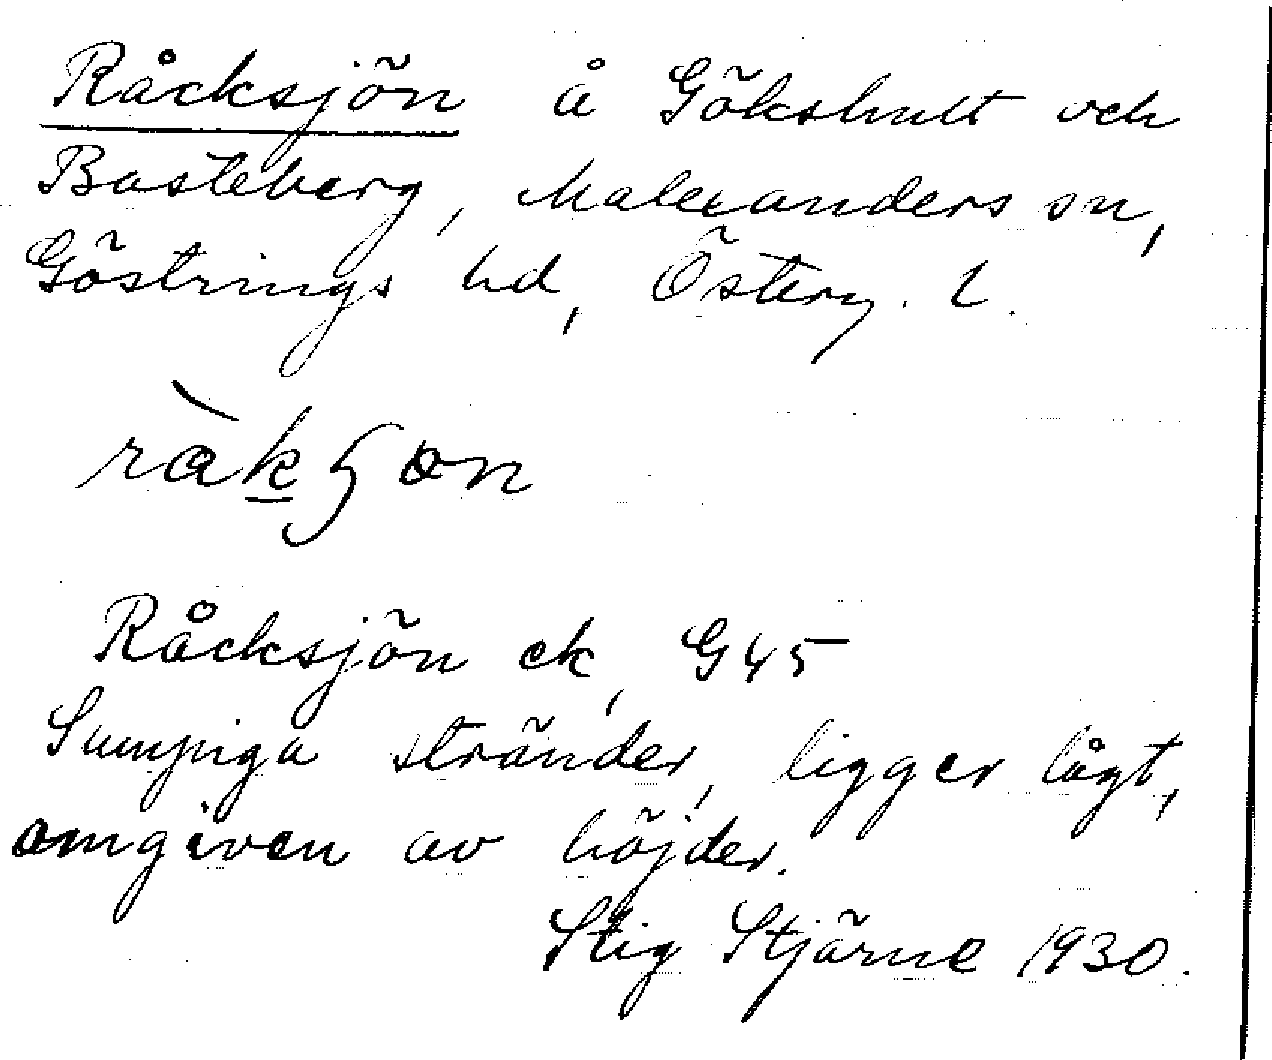 Råcksjön å Gökshult och
Basteberg, Malexanders sn,
Göstrings hd, Österg. l.
Råcksjön ek, G45
Sumpiga stränder, ligger lågt,
omgiven av höjder.
Stig Stjärne 1930.